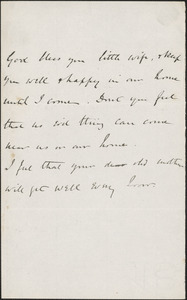 God bless you little wife, & keep
you well & happy in our home
until I come. Dont you feel
that no sod thing can come
near us in our home.
I feel that your dear old mother
will get well very soon